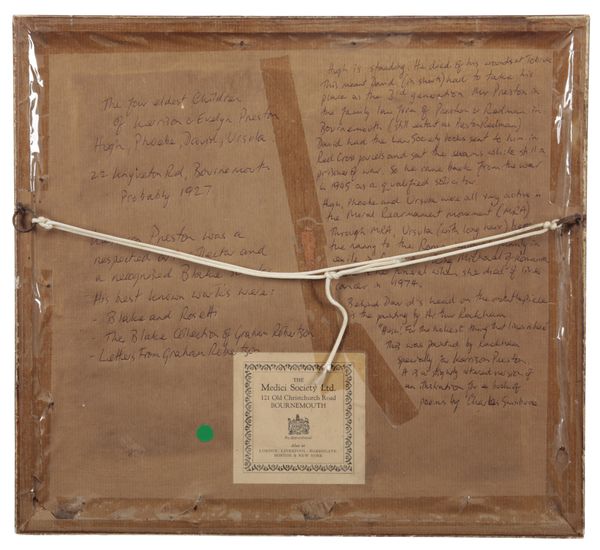 The four eldest Children
of Kerrison & Evelyn Preston
Hugh, Phoebe, David, Ursula
22 Knyveton Rd, Bournemouth
Probably 1927
Preston was a
respected and
a recognised Blake
His best known works were:
- Blake and Rosetti
- The Blake Collection of Graham Robertson
- Letters From Graham Robertson
Hugh is standing. He died of his wounds at Tobruk
This meant David (in shorts) had to take his
place as the 3rd generation Mr Preston in
the family law firm of Preston & Redman in
Bournemouth (still extant as Preston Redman)
David had the Law Society books sent to him in
Red Cross parcels and sat the exams while still a
prisoner of war. So he came back from the war
in 1945 as a qualified solicitor.
Hugh, Phoebe and Ursula were all very active in
the Moral Rearmament movement (MRA)
Through MRA, Ursula (with long hair)
the nanny to the family in
exile Michael of Romania
funeral when she died of
cancer in 1974.
Behind David's head on the mantlepiece
is the painting by Arthur Rackham.
"Hush! For the holiest thing that lives is here"
This was painted by Rackham
specially for Kerrison Preston.
It is a slightly altered version of
an illustration for a book of
poems by Charles Swinburne
THE
Medici Society Ltd.
121 Old Christchurch Road
BOURNEMOUTH
Also at
LONDON · LIVERPOOL · HARROGATE
BOSTON & NEW YORK